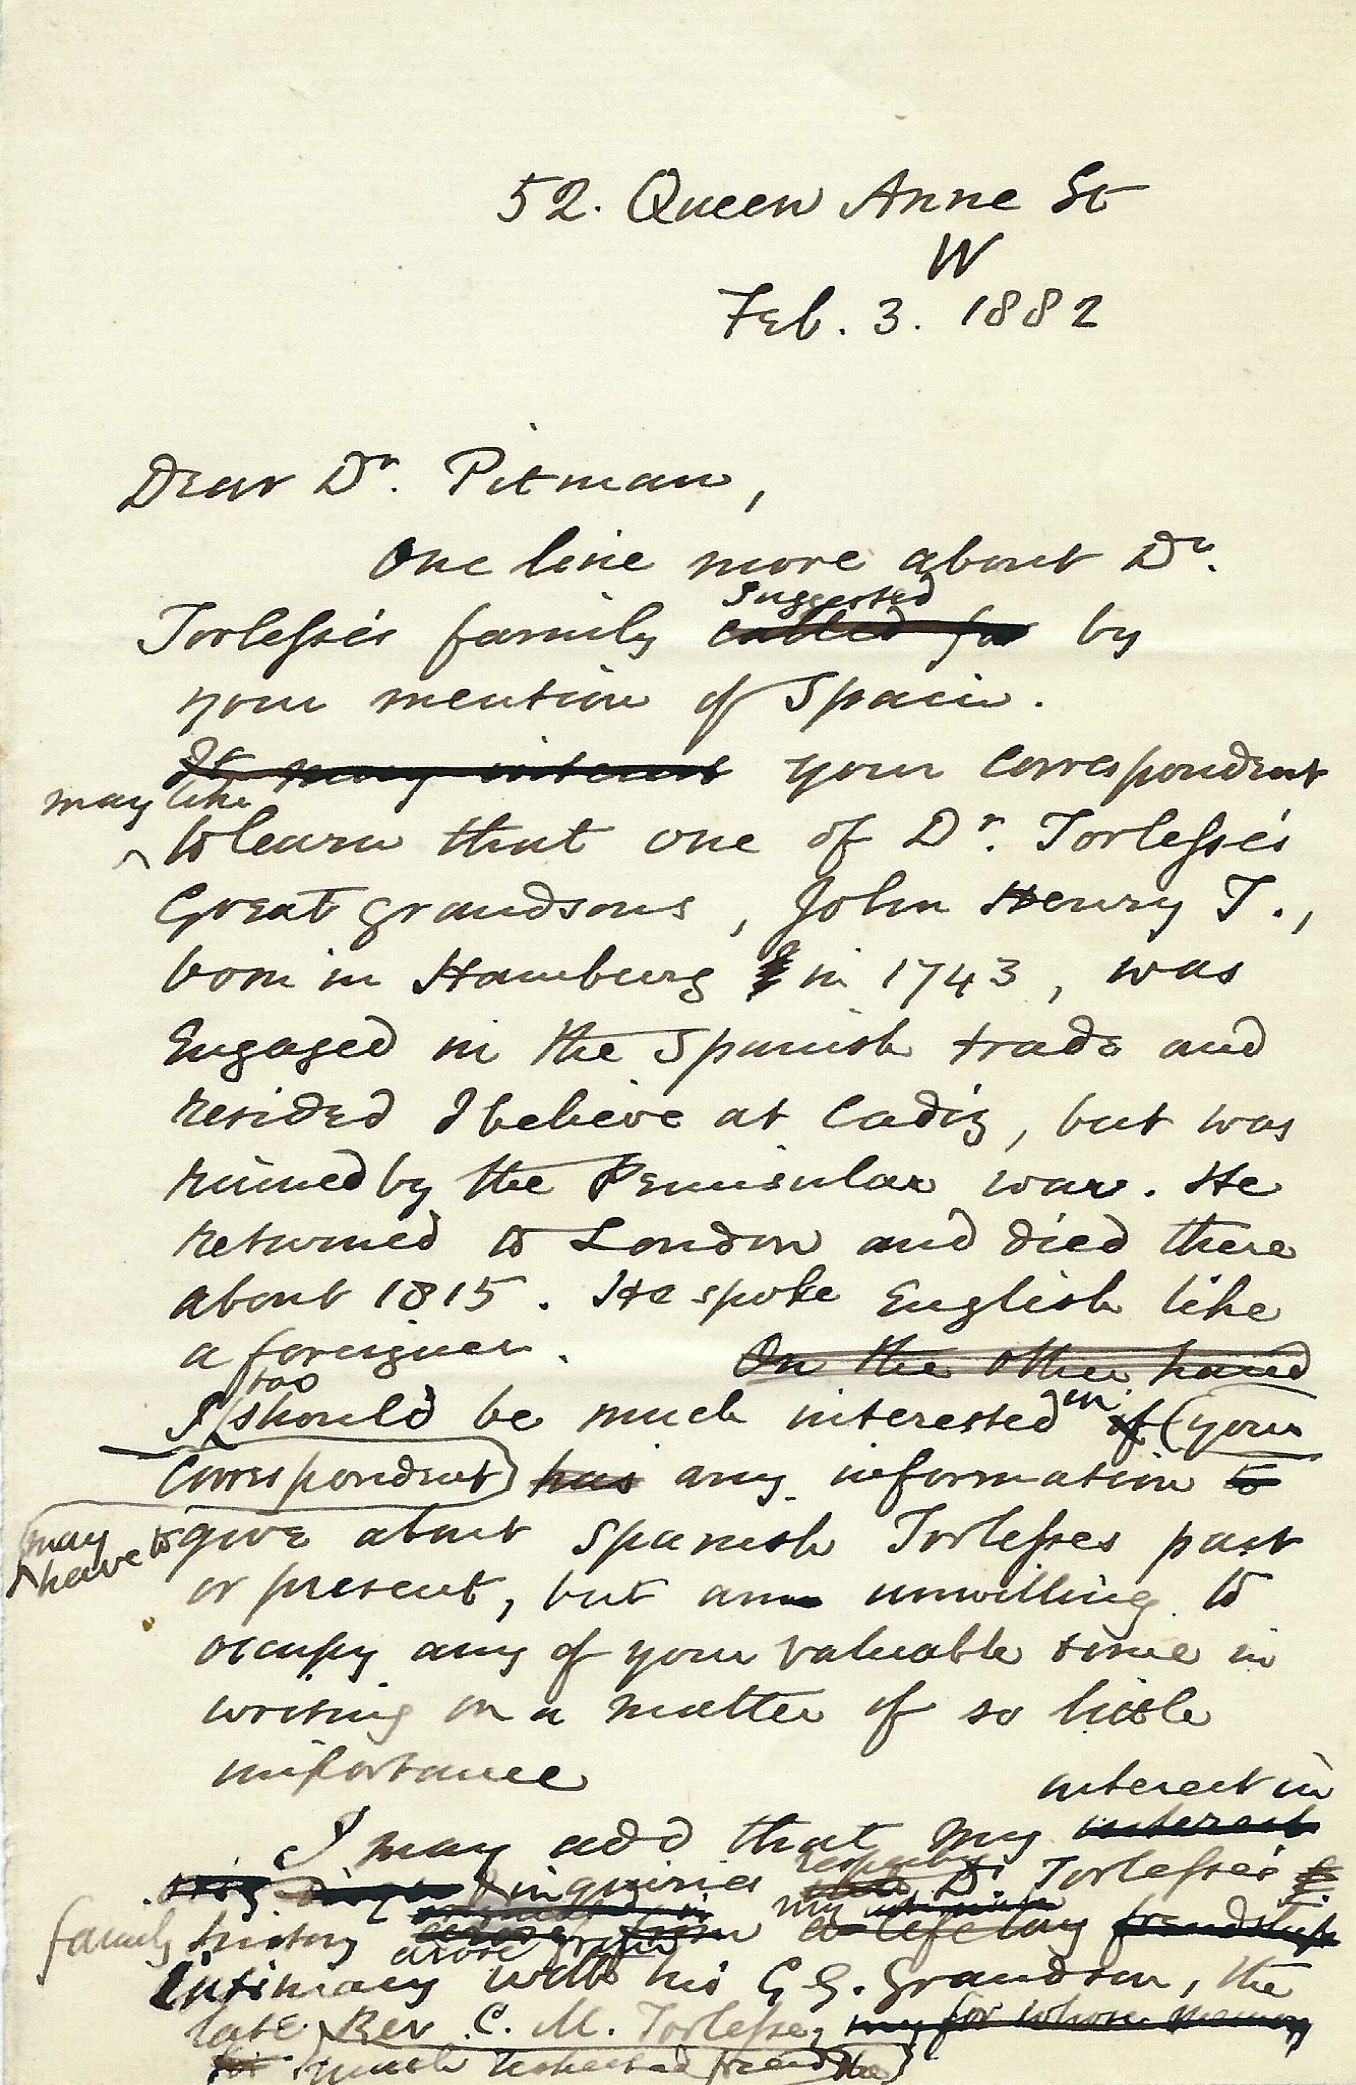 52. Queen Anne St
W
Feb. 3. 1882
Dear Dr. Pitman,
One line more about Dr.
suggested
Torlesse's family called for by
your mention of Spain.
It may interest your correspondent
may like
to learn that one of Dr. Torlesse's
Great grandsons, John Henry T.,
born in Hamburg in 1743, was
Engaged in the Spanish trade and
resided I believe at Cadiz, but was
ruined by the Peninsular war. He
returned to London and died there
about 1815. He spoke English like
a foreigner. On the other hand
too
I should be much interested in if (your
Correspondent) has any information to
may have to give about Spanish Torlesses past
or present, but am unwilling to
occupy any of your valuable time in
writing on a matter of so little
importance
interest in
I may add that my interest
inquiries respecting Dr. Torlesse's
my
family history arose from a life long friendship
arose from
Intimacy with his G. G. Grandson, the
late Rev. C. M. Torlesse, my for whose memory
much respected friend the